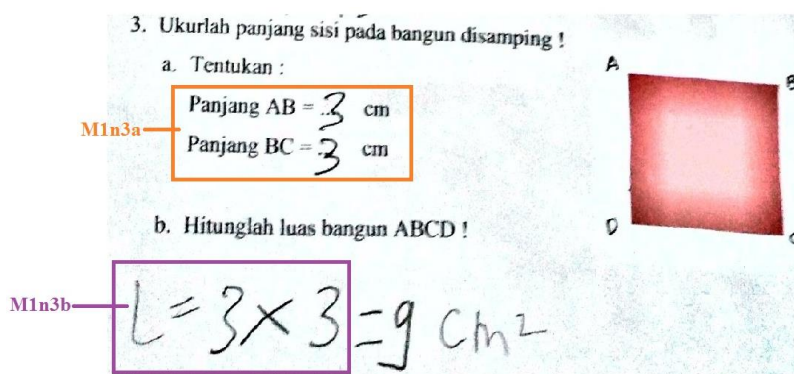 3. Ukurlah panjang sisi pada bangun disamping !
a. Tentukan :
Panjang AB = 3 cm
Panjang BC = 3 cm
M1n3a
A
B
D
b. Hitunglah luas bangun ABCD !
M1n3b
L = 3 × 3 = 9 cm²